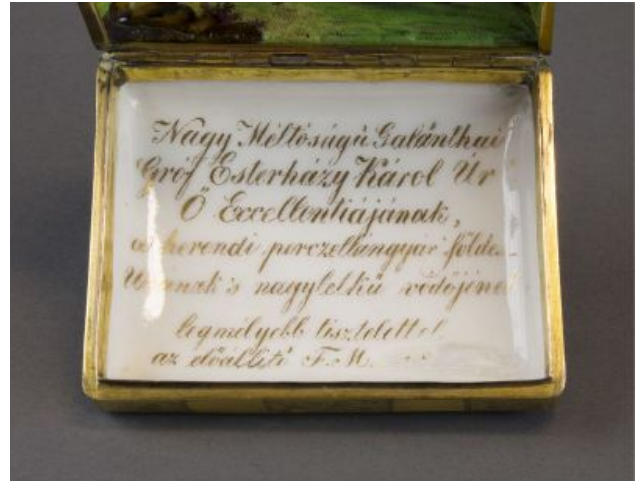 Nagy Méltóságú Galánthai
Gróf Esterházy Károl Úr
Ő Excellentiájának,
a herendi porczellángyár földes
Urának 's nagylelkű védőjének
legmélyebb tisztelettel
az előállító F. M.